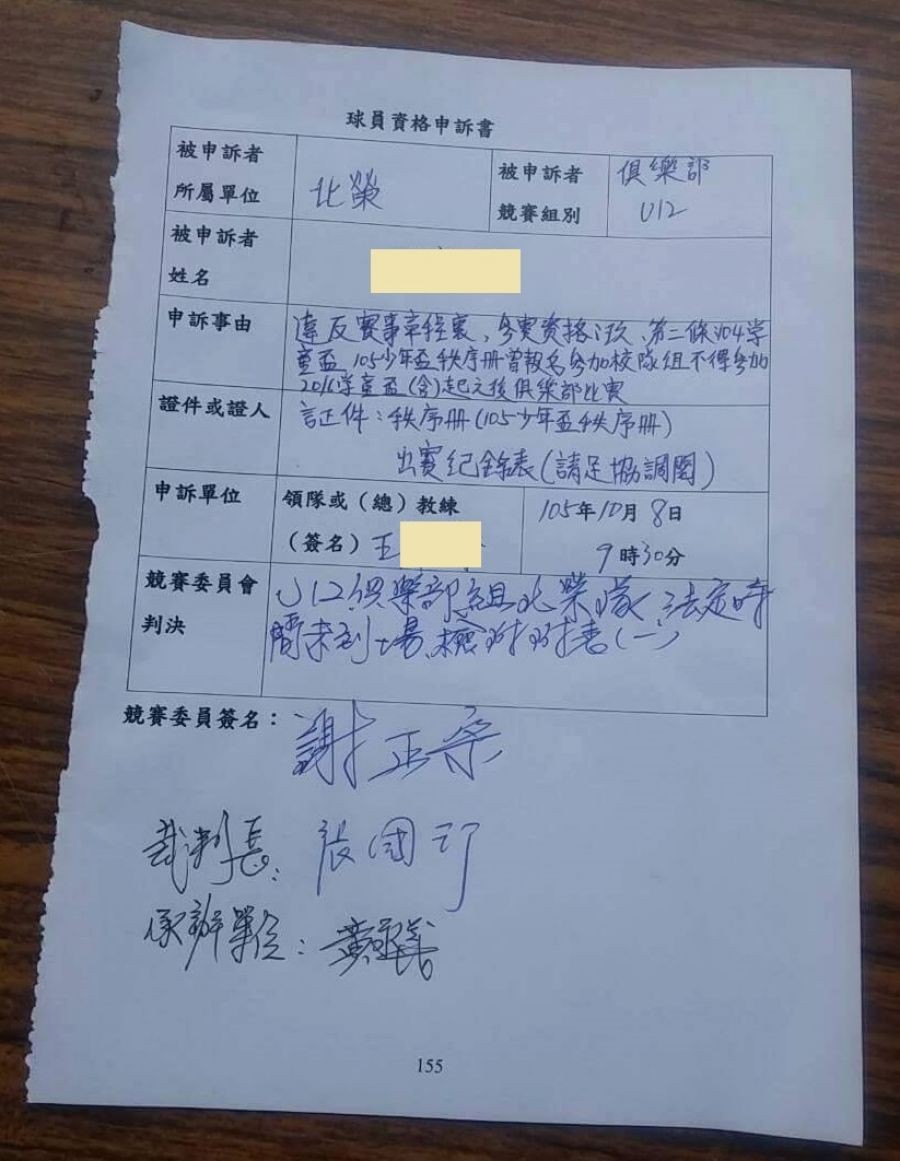 球員資格申訴書
被申訴者
所屬單位
北榮
被申訴者
競賽組別
俱樂部
U12
被申訴者
姓名
申訴事由
違反賽事章程裏、參賽資格 第二條104学
童盃 105少年盃秩序册曾報名參加校隊組不得參加
2016学童盃(含)起之後俱樂部比賽
證件或證人
証件：秩序册(105少年盃秩序册)
出賽紀錄表(請足協調閱)
申訴單位
領隊或（總）教練
（簽名）王
105年10月8日
9時30分
競賽委員會
判決
U12俱樂部組北榮隊 法定時
間未到場、檢附附書(一)
競賽委員簽名：
謝正
裁判長：張國
承辦單位：黃
155